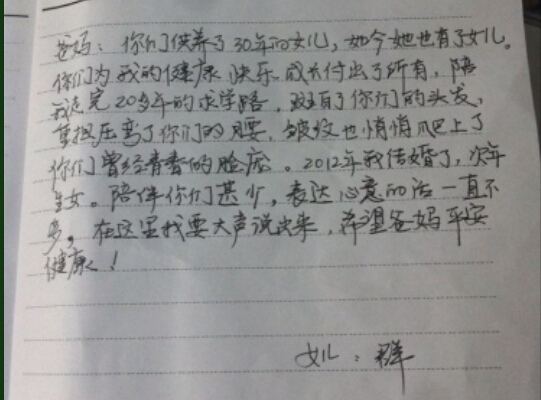 爸妈：你们供养了30年的女儿，如今她也有了女儿。
你们为我的健康快乐成长付出了所有，陪
我走完20多年的求学路，斑白了你们的头发，
重担压弯了你们的腰，皱纹也悄悄爬上了
你们曾经青春的脸庞。2012年我结婚了，次年
生女。陪伴你们甚少，表达心意的话一直不
多，在这里我要大声说出来，希望爸妈平安
健康！
女儿：群